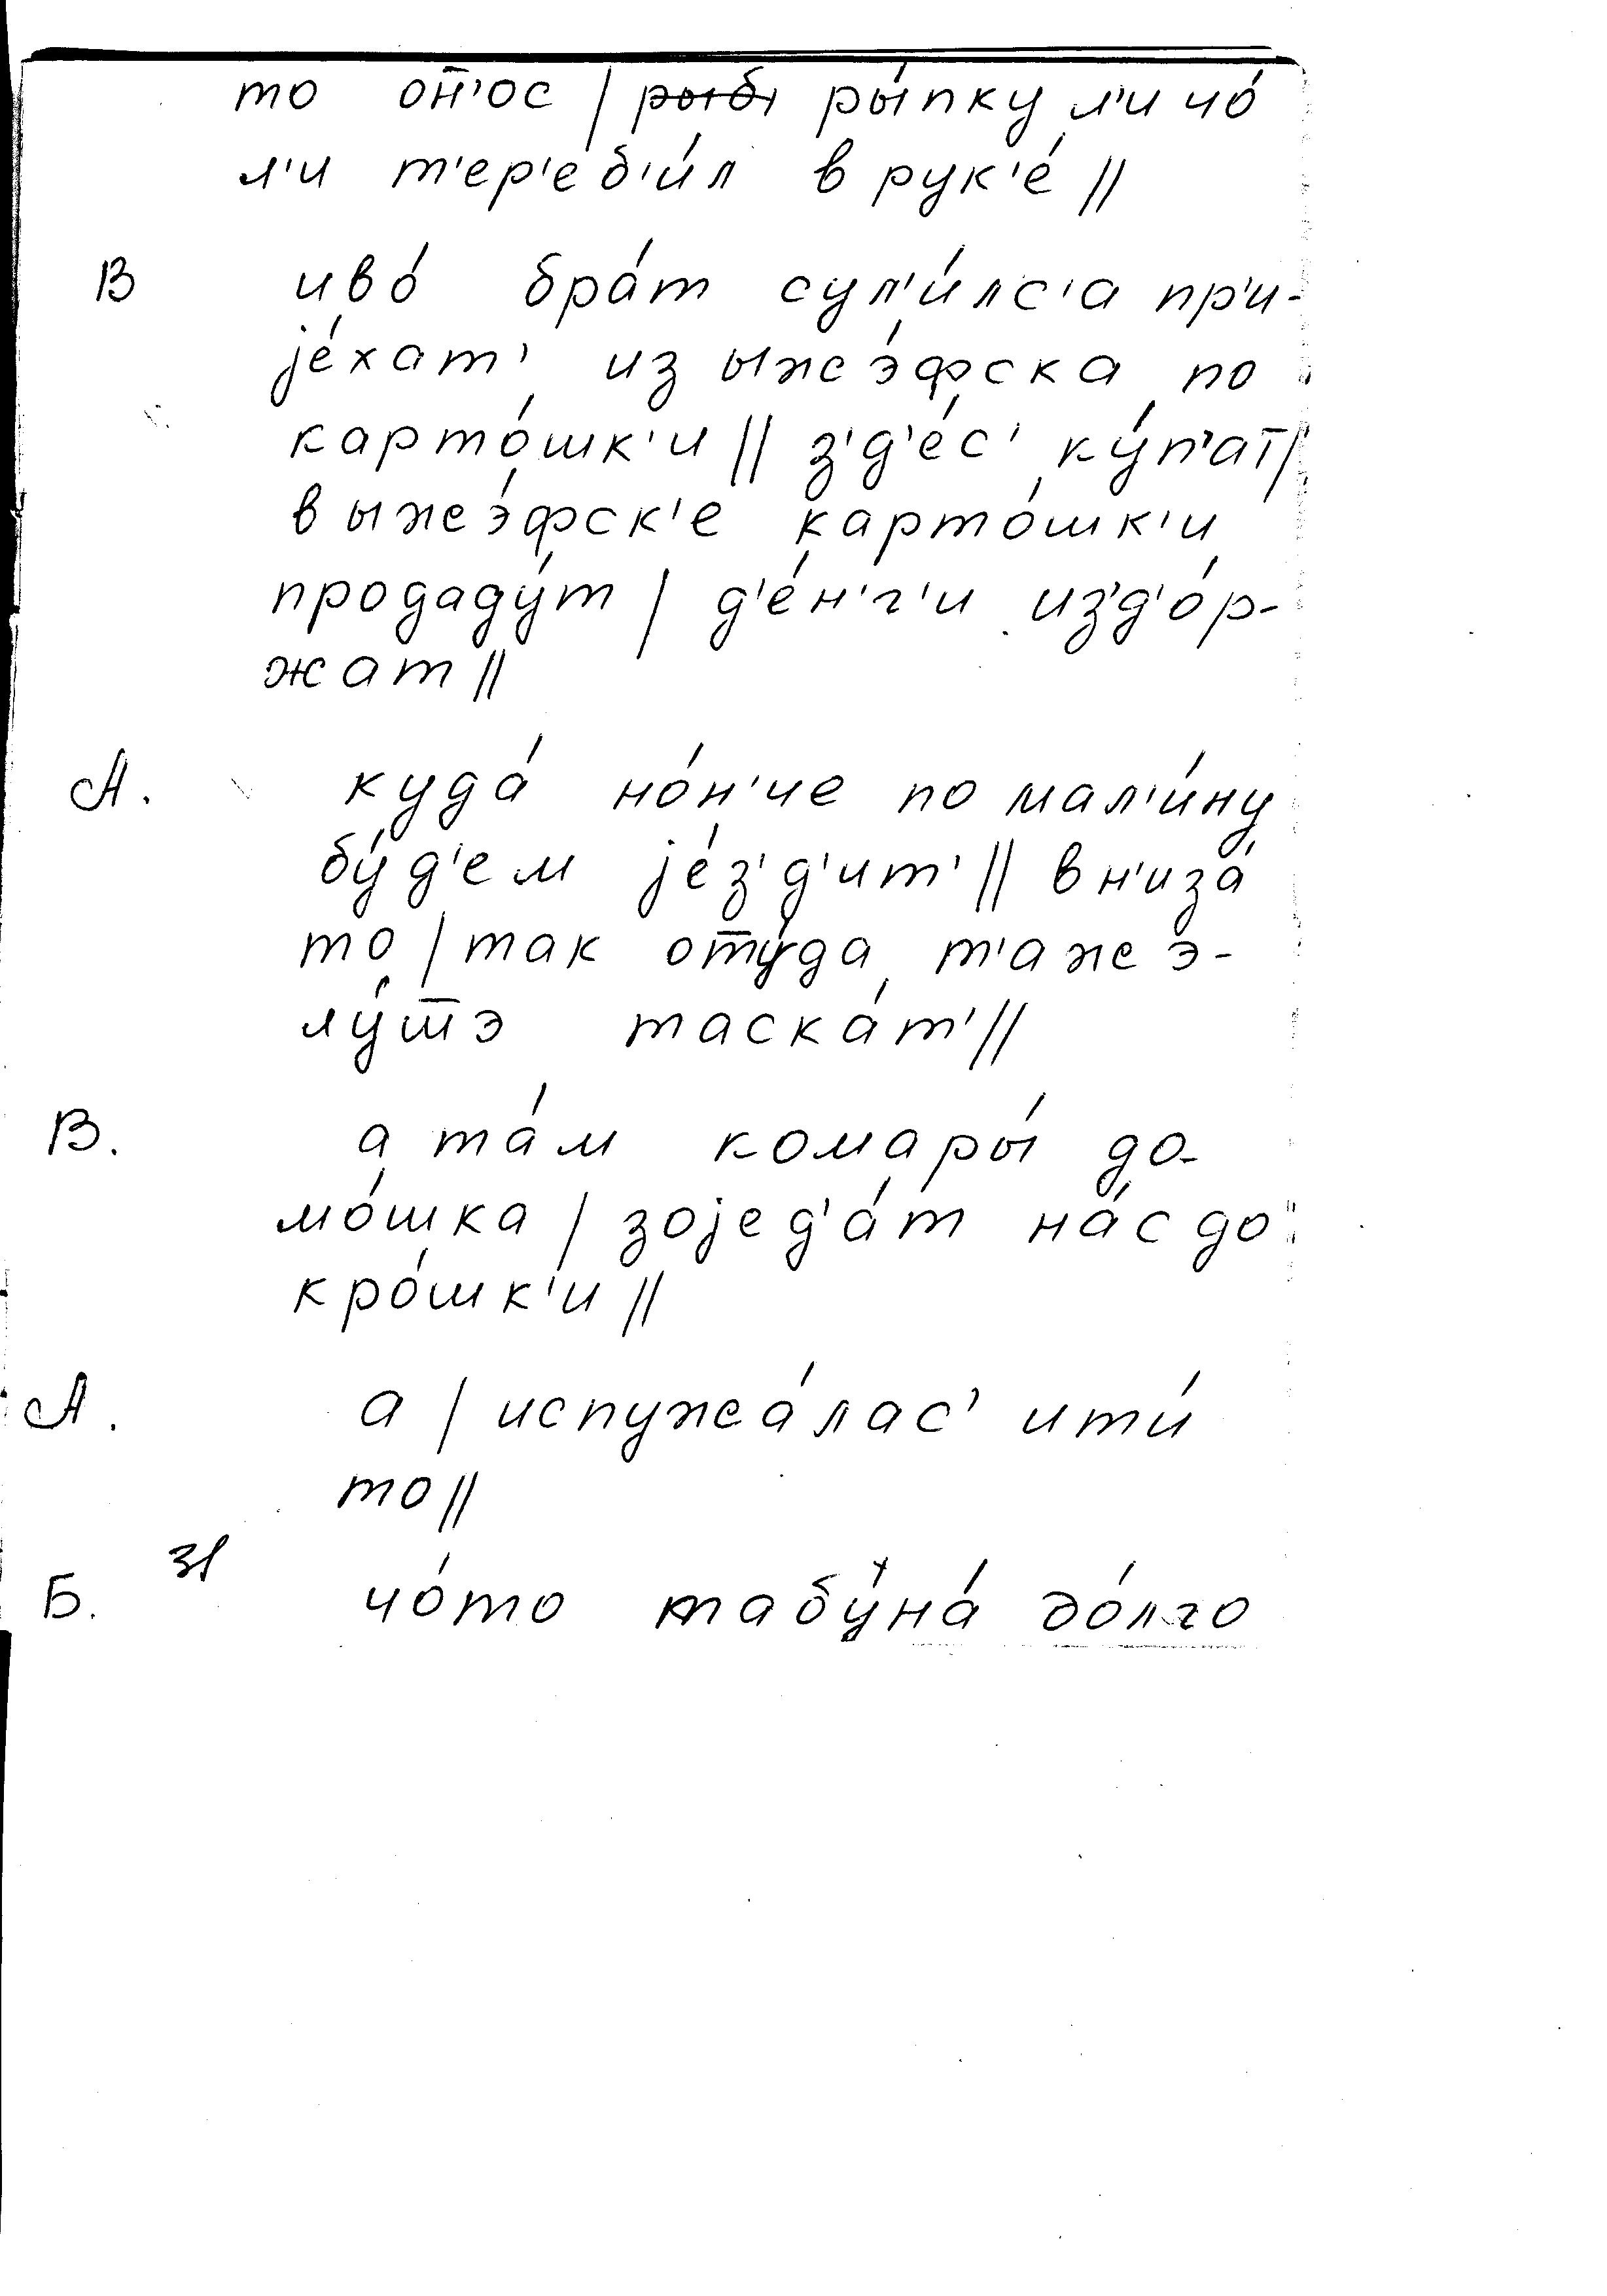 то он̄'ос | ~~рыбı~~ ры́пку л'и чо́
л'и т'ер'еб'и́л в рук'е́ ||
В иво́ бра́т сул'и́лс'а пр'и-
jе́хат' из ыжэ́фска по
карто́шк'и || з'д'е́с' ку́п'ат̄ |
в ыжэ́фск'е карто́шк'и
продаду́т | д'е́н'г'и из'д'о́р-
жат ||
А. куда́ но́н'че по мал'и́ну
бу́д'ем jе́з'д'ит' || в н'иза́
то | так от̄у́да т'ажэ-
лу́ш̄э таска́т' ||
В. а та́м комары́ да-
мо́шка | зоjед'а́т на́с до
кро́шк'и ||
А. а | испужа́лас' ити́
то ||
31
Б. чо́то табуна́ до́лго